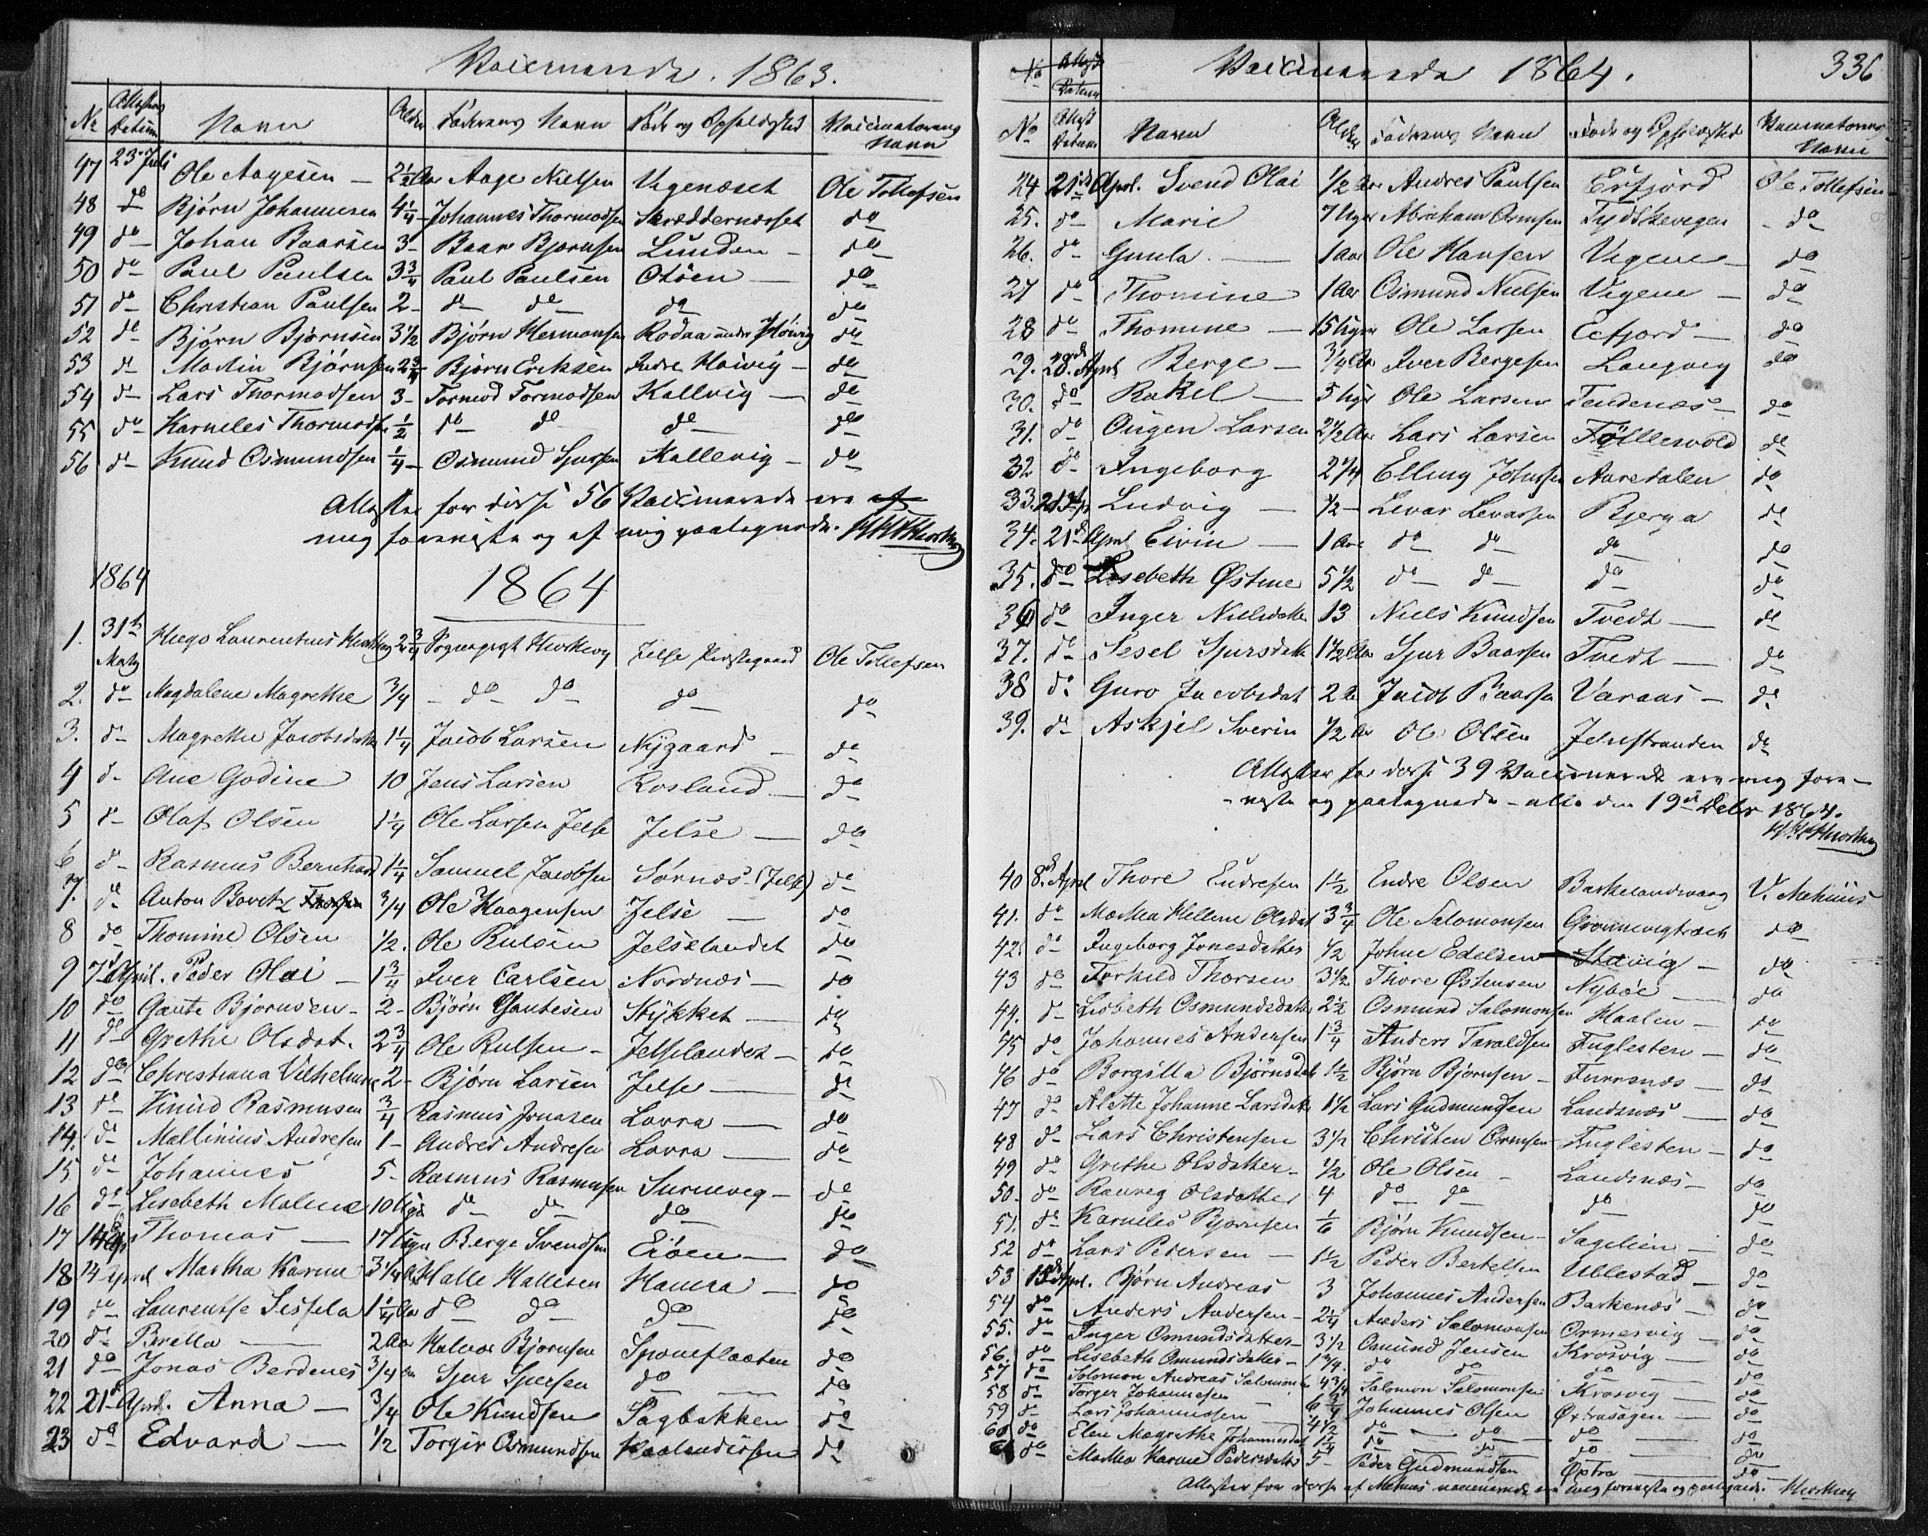 Vaccinerede. 1863.
No Attestens Datum Navn Alder Faderens Navn Føde og Opholdssted Vaccinateurens Navn
47 23 Juli Ole Aagesen — 2½ Aar Aage Nielsen Vigenæset Ole Tollefsen
48 do Bjørn Johannesen 4¼ Johannes Thormodsen Skreddernæsset do
49 do Johan Baarsen 3 Baar Bjørnsen Lunden do
50 do Paul Paulsen 3¾ Paul Paulsen Otøen do
51 do Christian Paulsen 2 do do do do
52 do Bjørn Bjørnsen 3½ Bjørn Hermansen Rødaa under Høivig do
53 do Martin Bjørnsen 2¾ Bjørn Eriksen Indre Høivig do
54 do Lars Thormodsen 3 Tormod Tormodsen Kallvig do
55 do Karneles Thormodsen ½ do do do do
56 do Knud Osmundsen ¼ Osmund Sjursen Kallevig do
Attester for disse 56 Vaccinerede ere af
mig foreviste og af mig paategnede.
1864 1864
1. 31te Marts Hugo Laurentius 2¾ Sognepræst Jelse Præstegaard Ole Tollefsen
2. do Magdalene Magrethe ¾ do do do do
3. do Magrethe Jacobsdatter 1¼ Jacob Larsen Nygaard do
4 do Ane Godine 10 Jens Larsen Rosland do
5 do Olaf Olsen 1¼ Ole Larsen Jelse Jelse do
6 do Rasmus Bernhard 1¼ Samuel Jacobsen Sørnæs (Jelse) do
7. do Anton Bovitz ¾ Ole Haagensen Jelse do
8 do Thomine Olsen ½. Ole Rulsen Jelselandet do
9 7de April. Peder Olai — 1¾ Iver Carlsen Nordnæs do
10 do Gaute Bjørnsen 2 Bjørn Gautesen Stykket do
11 do Grethe Olsdat. 2¾ Ole Rulsen Jelselandet do
12 do Christiana Vilhelmine 2 Bjørn Larsen Jelse do
13 do Knud Rasmusen ¾ Rasmus Jonasen Lovra do
14. do Mallinius Andresen 1 Andres Andresen Lovra do
15 do Johannes 5 Rasmus Rasmusen do
16 do Lisebeth Malene 10 Uger do do do do
17 14 Thomas — 17 Uger Berge Svendsen Eiøen do
18 14 April Martha Karine 3¼ Aar Halle Hallesen Hamra do
19 do Laurentse Sissela 1¼ Aar do do do do
20 do Brella 2 Aar Halvor Bjørnsen do
21 do Jonas Berdenes ¾ Aar Sjur Sjursen do do
22 21de April. Anna — ¾ Ole Knudsen Sagbakken do
23 do Edvard — ½ Torger Osmundsen do
Vaccinerede 1864. 336
No Attest Datum
No Attest Datum Navn Alder Faderens Navn Føde og Opholdssted Vaccinateurens Navn
24 21de April. Svend Olai ½ Aar Andres Paulsen Erfjord Ole Tollefsen
25. do Marie 7 Uger Abraham Ormsen Tydskevigen do
26. do Gunla 1 Aar Ole Hansen Vigene do
27 do Thomine 1 Aar Osmund Nielsen Vigene do
28 do Thomine 15 Uger Ole Larsen Erfjord do
29. 20de April Berge ¾ Aar Iver Bergesen Langvig do
30. do Rakel 5 Uger Ole Larsen Tendenæs do
31. do Ougen Larsen 2½ Aar Lars Larsen Follesvold do
32 do Ingeborg 2¼ Elling Johnsen Aaredalen do
33. 21de Ludvig ½ Levar Levarsen Bjerga do
34. 21de April Eivin 1 Aar do do do do
35. do Lisebeth Østine 5½ do do do do
36 do Inger Nilsdatter 13 Niels Knudsen Tvedt do
37. do Sesel Sjursdatter 1½ Aar Sjur Baarsen Tvedt do
38 do Guro Jacobsdat 2 Aar Jacob Baarsen Varaas do
39. do Askjel Sverin ½ Aar Ole Olsen Jelsestranden do
Attester for disse 39 Vaccinerede ere mig fore-
viste og paategnede alle den 19de Debr 1864.
40 8de April Thore Endresen 1½ Endre Olsen V. Mehuus
41. do Martha Hellene Olsdat 3¾ Ole Salomonsen do
42. do Ingeborg Jonesdatter ½ Johne Edelsen do
43 do Torkild Thorsen 3½ Thore Østensen Nybøe do
44. do Lisbeth Osmundsdatter 2½ Osmund Salomonsen Haalen do
45 do Johannes Andersen 1¾ Anders Taraldsen Fuglesten do
46 do Borgilla Bjørnsdat 1½ Bjørn Bjørnsen do
47 do Alette Johanne Larsdatter 1½ Lars Gudmundsen Landsnæs do
48 do Lars Christensen 3½ Christen Ormsen Fuglesten do
49 do Grethe Olsdatter ½ Ole Olsen Landsnæs do
50. do Ranveg Olsdatter 4 do do do do
51. do Karneles Bjørnsen 1/6 Bjørn Knudsen Sagelien do
52 do Lars Pedersen 1½ Peder Bertelsen Ullestad do
53 13de April. Bjørn Andreas 3 Johannes Andersen Barkenæs do
54 do Anders Andersen 2¼ Anders Salomonsen Ormesvig do
55. do Inger Omundsdatter 3½ Omund Jensen Krosvig do
56. do Lisebeth Omundsdatter do do do do
57 do Solomon Andreas Salomonsen 4¾ Salomon Salomonsen Krosvig do
58 do Torger Johannesen Johannes Olsen do
59 do Lars Johannesen 4½ do do do do
60 do Elen Magrethe Johannesdat do do do do
do Martha Karine Pedersdatter 5 Peder Gudmundsen Østra do
Attester for disse af Mehuus vaccinerede ere mig foreviste og paategnede.